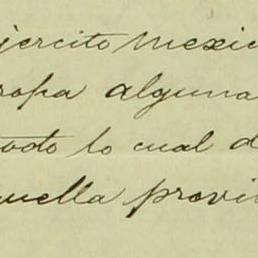 jercito Mexic
ropa alguna
todo lo cual d
uella provi